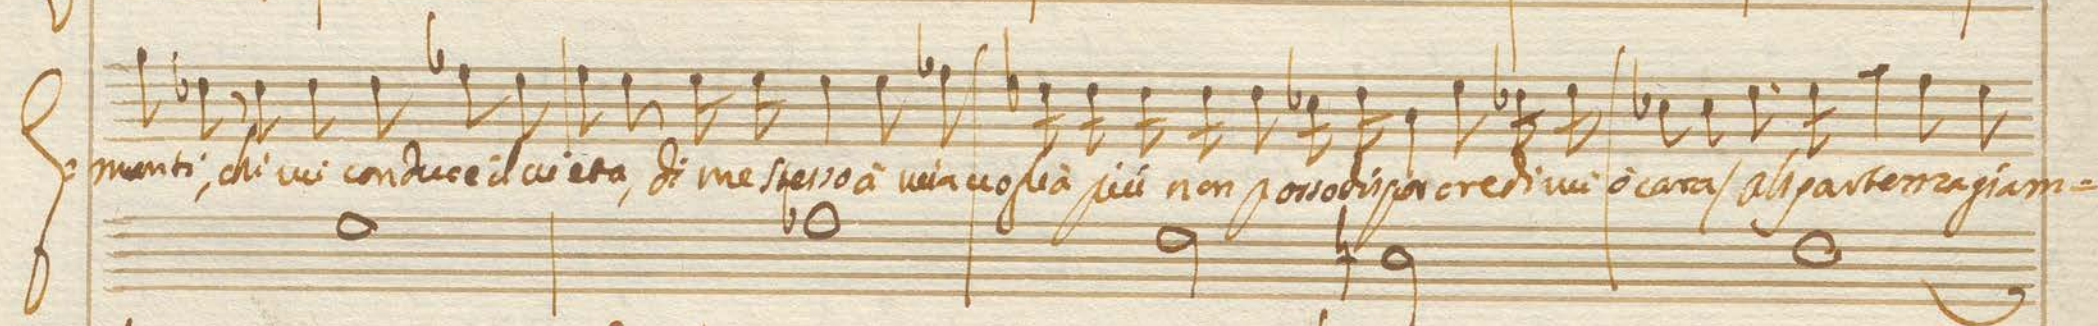 menti, chi vi conduce il vieta, di me stesso à mia voglia più non posso dispor credimi ò cara / ah partenza giam=